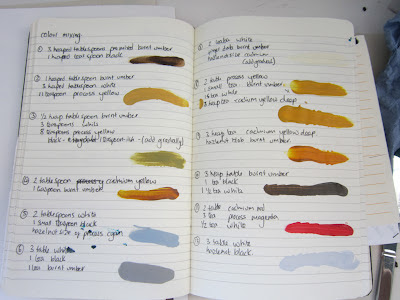 colour mixing
① 3 heaped tablespoons pre mixed burnt umber
1 heaped tea spoon black
②
1 heaped tablespoon burnt umber
3 heaped tablespoon white
1 teaspoon process yellow
③ 1/2 heap tablespoon burnt umber
3 teaspoons white
8 teaspoons process yellow
black - (add gradually)
④ 2 tablespoon cadmium yellow
1 teaspoon burnt umber
⑤ 2 tablespoons white
1 small teaspoon black
hazelnut size of process cyan
⑥ 3 table white
1 tea black
1 tea burnt umber
2 table white
burnt umber
hazelnut size cadmium
(add gradual)
2 table process yellow
1 small tea burnt umber
tea white
heap tea cadmium yellow deep
3 heap tea cadmium yellow deep
hazelnut blob burnt umber
3 heap table burnt umber
1 tea black
1 1/2 tea white
2 table cadmium red
3 tea process magenta
1/2 tea white
3 table white
hazelnut black